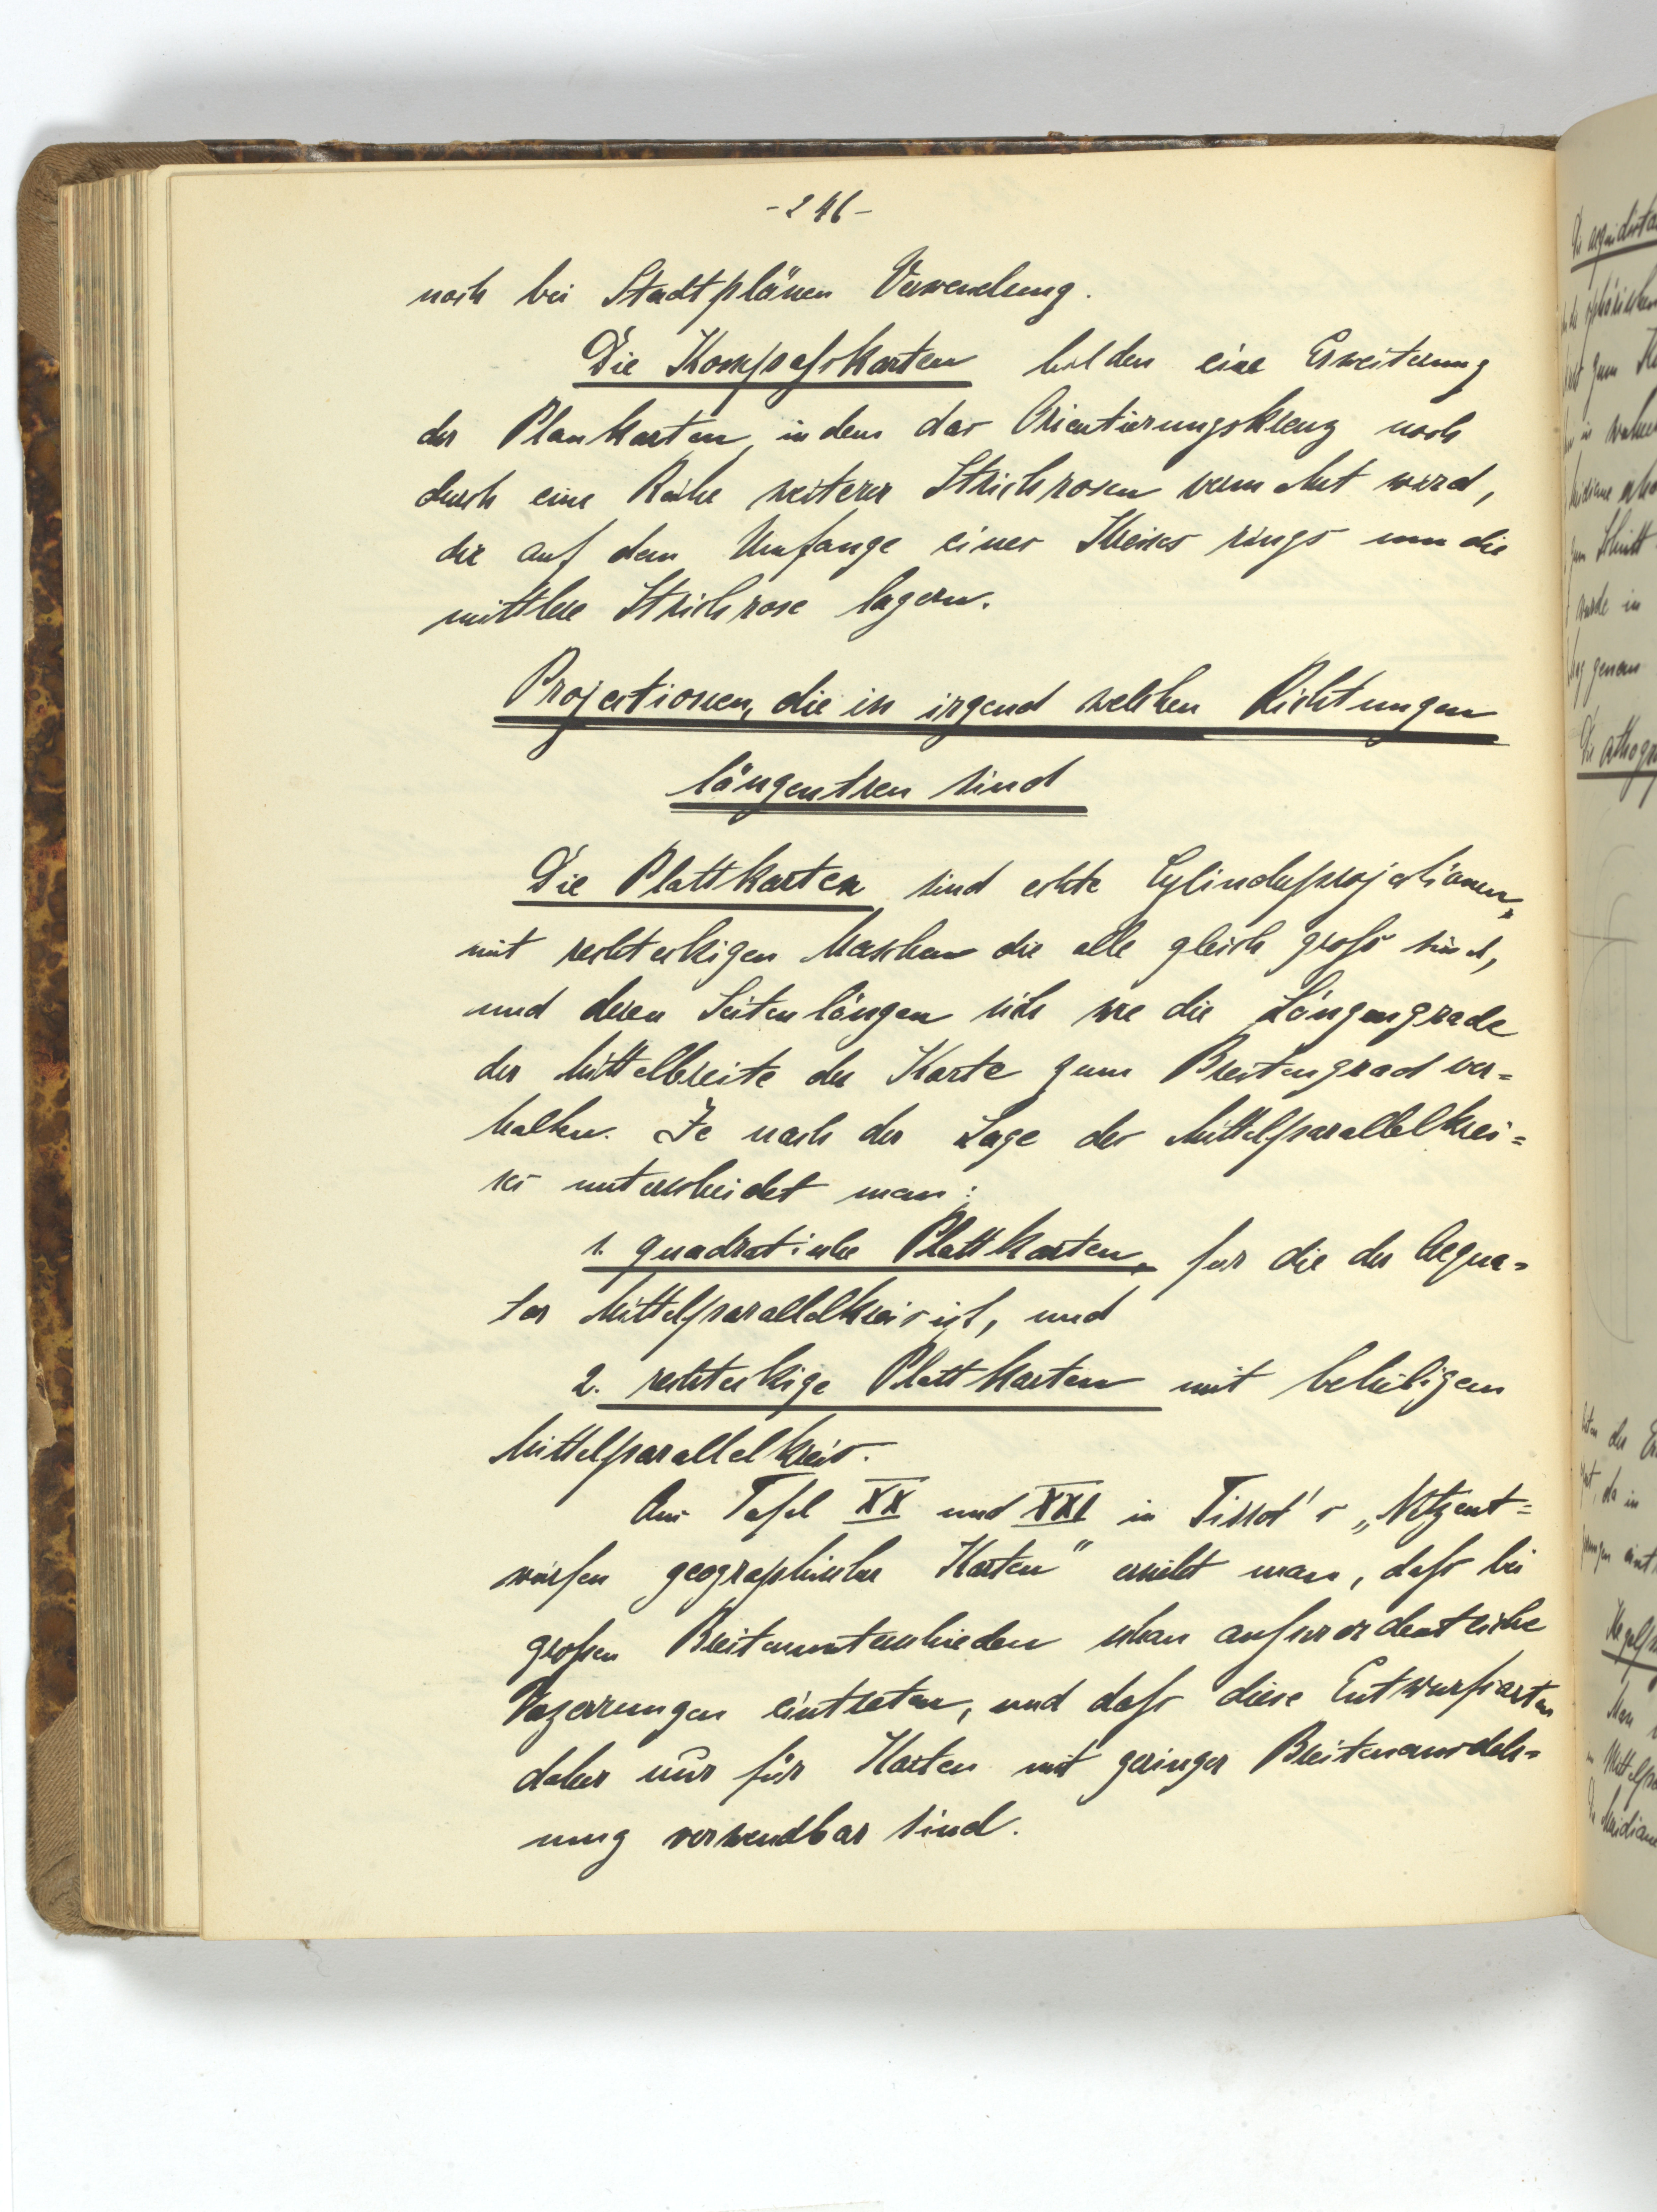 -246-
noch bei Stadtplänen Verwendung.
Die Kompaßkarten bilden eine Erweiterung
der Plankarten, indem das Orientierungskreuz noch
durch eine Reihe weiterer Strichrosen vermehrt wird,
die auf dem Umfange eines Kreises rings um die
mittlere Strichrose lagern.
Projectionen, die in irgend welchen Richtungen
längentreu sind
Die Plattkarten sind echte Cylinderprojectionen,
mit rechteckigen Maschen die alle gleich groß sind,
und deren Seitenlängen sich wie die Längengrade
der Mittelbreite der Karte zum Breitengrad ver=
halten. Je nach der Lage des Mittelparallelkrei=
ses unterscheidet man:
1. quadratische Plattkarten, für die der Aequa=
tor Mittelparallelkreis ist, und
2. rechteckige Plattkarten mit beliebigem
Mittelparallelkreis.
Aus Tafel XX und XXI in Tissot's „Netzent=
würfen geographischer Karten" ersieht man, daß bei
großen Breitenunterschieden schon außerordentliche
Verzerrungen eintreten, und daß diese Entwurfsarten
daher nur für Karten mit geringer Breitenausdeh=
nung verwendbar sind.